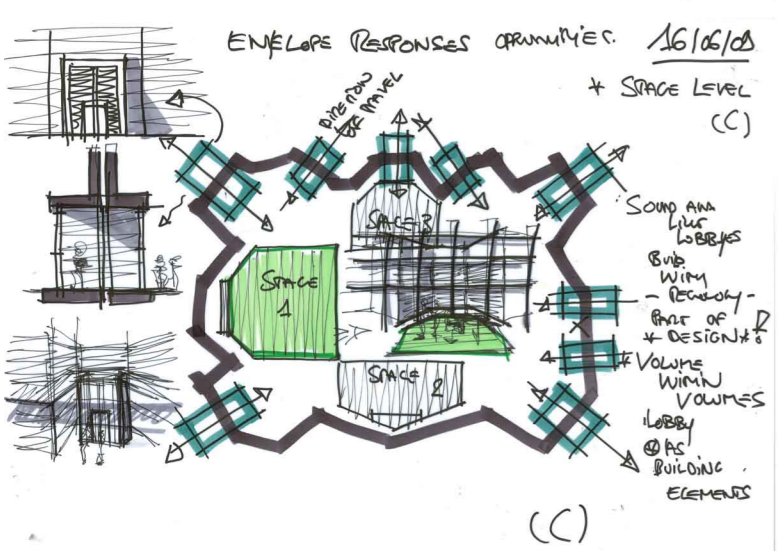 ENVELOPE RESPONSES
16/06/09
* SPACE LEVEL
(C)
DIRECTION
OF TRAVEL
SPACE 3
SPACE
1
SPACE
2
SOUND AND
LIKE
LOBBYES
BUILD
WITH
- TECNOLOGY -
PART OF
* DESIGN *!
* VOLUME
WITHIN
VOLUMES
LOBBY
AS
BUILDING
ELEMENTS
(C)